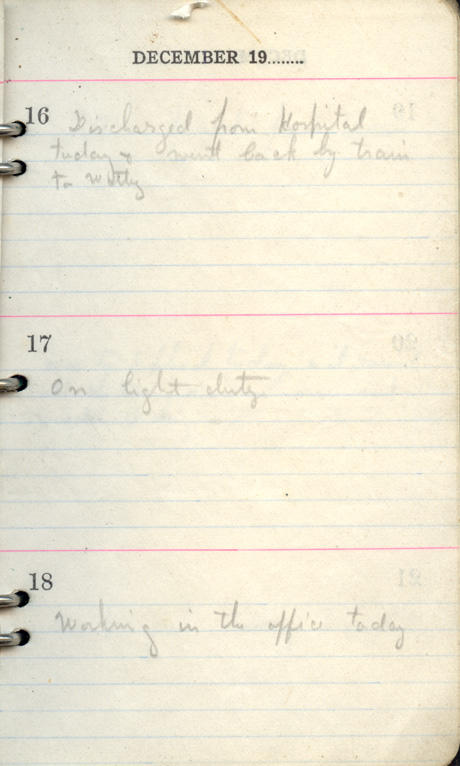 DECEMBER 19........
16
Discharged from Hospital
today & went back by train
to Witley
17
On light duty
18
Working in the office today